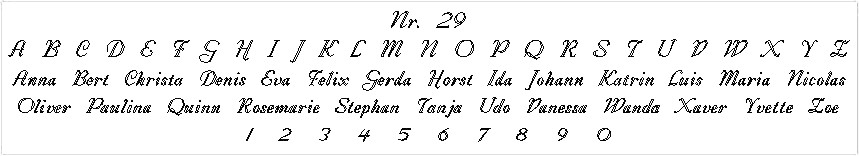 Nr. 29
A B C D E F G H I J K L M N O P Q R S T U V W X Y Z
Anna Bert Christa Denis Eva Felix Gerda Horst Ida Johann Katrin Luis Maria Nicolas
Oliver Paulina Quinn Rosemarie Stephan Tanja Udo Vanessa Wanda Xaver Yvette Zoe
1 2 3 4 5 6 7 8 9 0